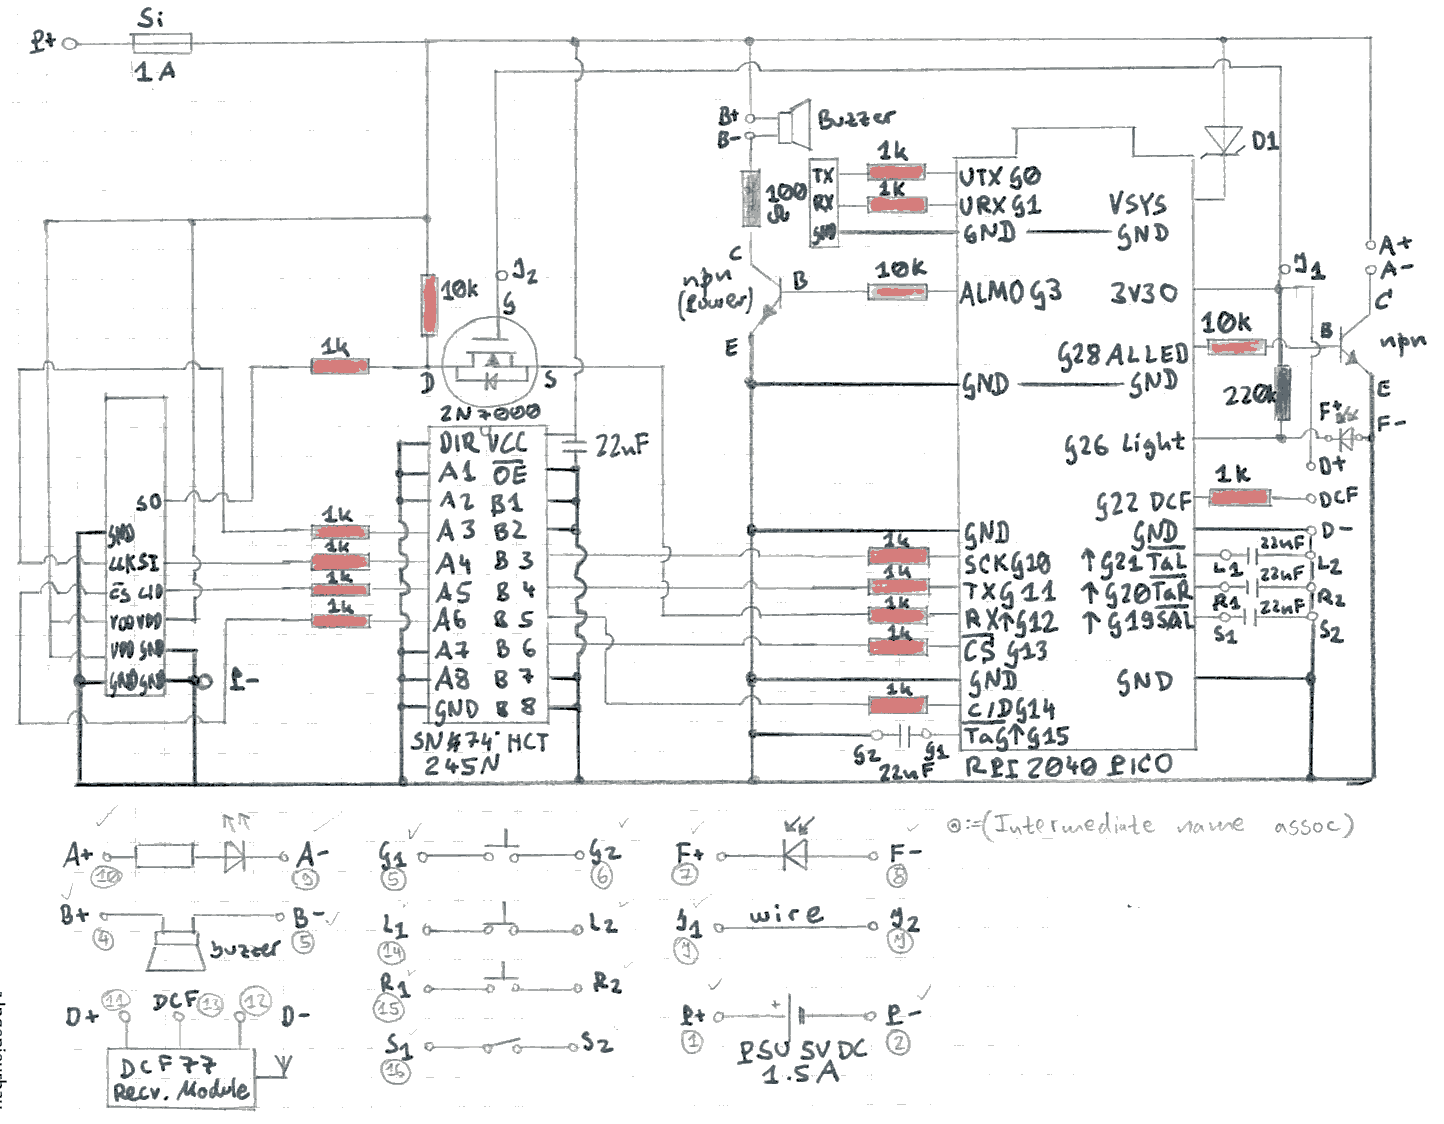 Si
P+
1A
B+
B-
Buzzer
D1
1k
TX
UTX G0
100
Ω
1k
RX
URX G1
VSYS
GND
GND
GND
A+
A-
J2
J1
C
npn
(Power)
B
10k
ALMO G3
3V3O
C
10k
G
E
10k
B
npn
1k
G28 ALLED
D
S
GND
GND
220k
E
2N7000
F+
F-
DIR VCC
22nF
G26 Light
D+
A1 OE
1k
SO
A2 B1
G22 DCF
DCF
GND
1k
A3 B2
GND
GND
D-
1k
22nF
CLK SI
1k
A4 B3
SCK G10
↑G21 TaL
L1
L2
1k
22nF
CS C/D
1k
A5 B4
TX G11
↑G20 TaR
R1
R2
1k
22nF
VDD VDD
1k
A6 B5
RX↑G12
↑G19 SAL
S1
S2
1k
VDD GND
A7 B6
CS G13
GND GND
P-
A8 B7
GND
GND
1k
GND B8
C/D G14
SN#74 HCT
245N
G2
G1
TaG↑G15
22nF
RPI 2040 PICO
⊙:=(Intermediate name assoc)
A+
A-
10
9
G1
G2
5
6
F+
F-
7
8
B+
B-
4
5
buzzer
L1
L2
14
J1
wire
J2
D+
11
DCF
13
12
D-
R1
R2
15
P+
P-
1
2
PSU 5V DC
1.5A
S1
S2
16
DCF77
Recv. Module